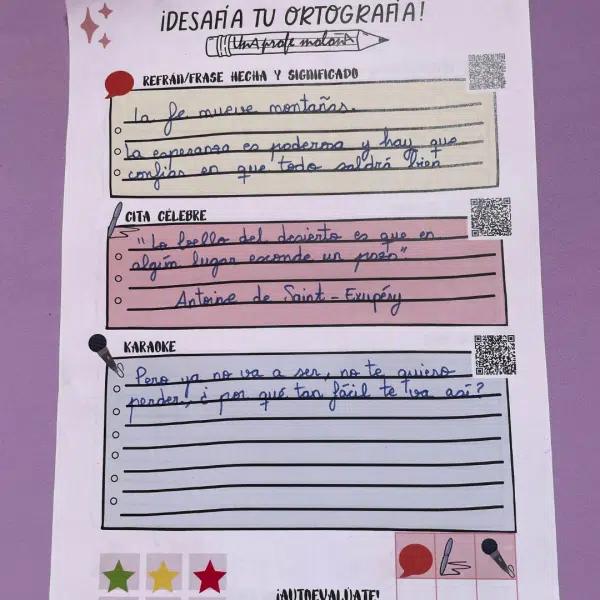 ¡DESAFÍA TU ORTOGRAFÍA!
UnAprofe molonA
REFRÁN/FRASE HECHA Y SIGNIFICADO
La fe mueve montañas.
La esperanza es poderosa y hay que
confiar en que todo saldrá bien
CITA CÉLEBRE
"Lo bello del desierto es que en
algún lugar esconde un pozo"
Antoine de Saint-Exupéry
KARAOKE
Pero ya no va a ser, no te quiero
perder, ¿por qué tan fácil te va así?
¡AUTOEVALÚATE!